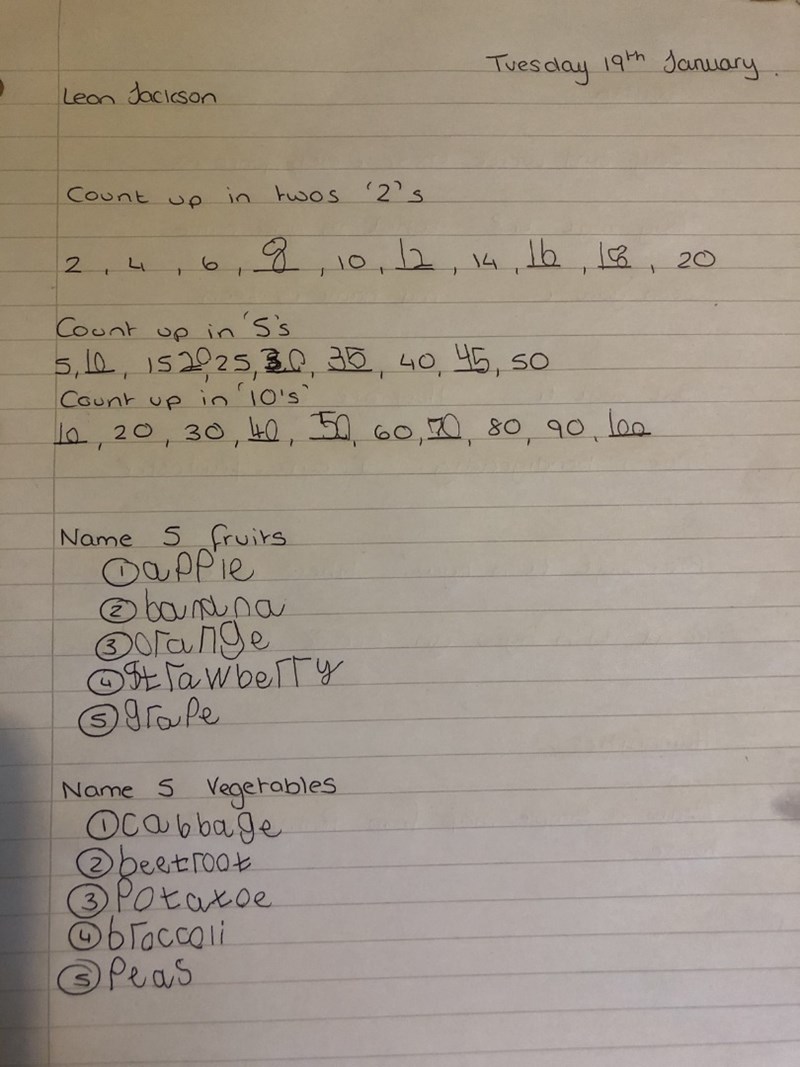 Tuesday 19th January.
Leon Jackson
Count up in twos '2's
2, 4, 6, 8, 10, 12, 14, 16, 18, 20
Count up in '5's
5, 10, 15 20, 25, 30, 35, 40, 45, 50
Count up in '10's'
10, 20, 30, 40, 50, 60, 70, 80, 90, 100
Name 5 fruits
① apple
② banana
③ orange
④ strawberry
⑤ grape
Name 5 Vegetables
① cabbage
② beetroot
③ Potatoe
④ broccoli
⑤ Peas